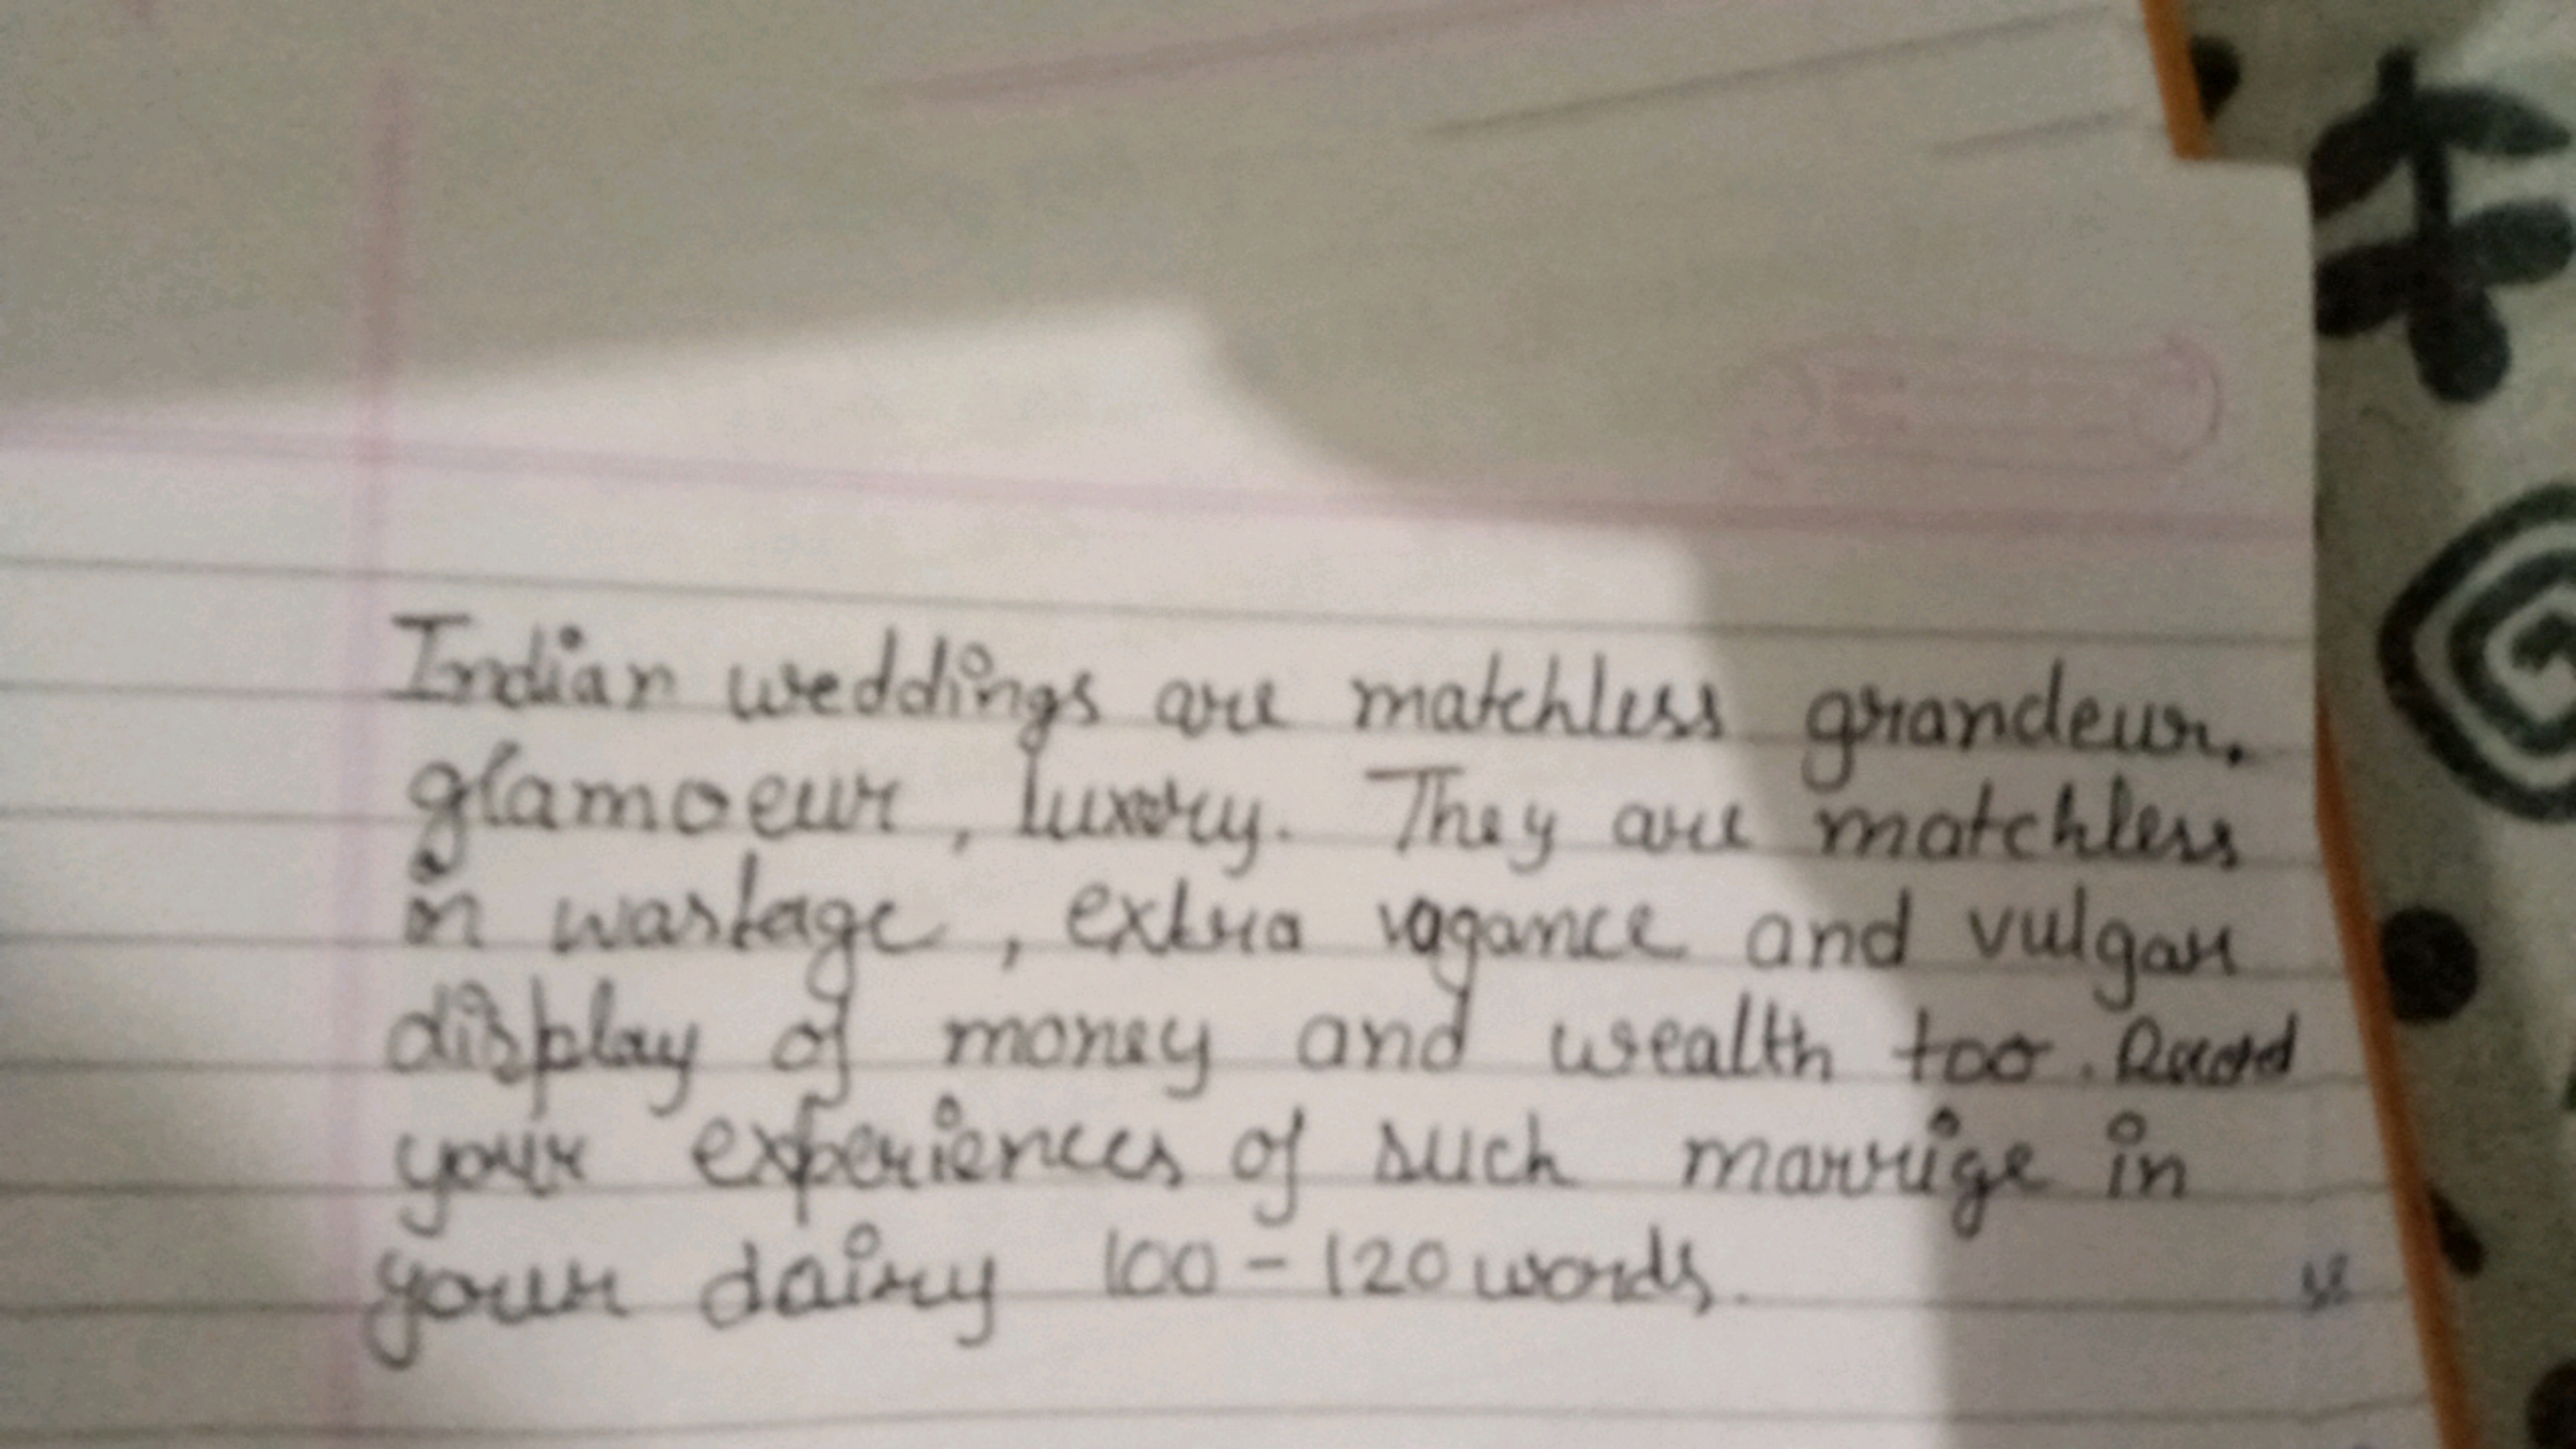 Indian weddings are matchless grandeur.
glamoeur, luxury. They are matchless
in wastage, extra vagance and vulgar
display of money and wealth too. Record
your experiences of such marrige in
your dairy 100-120 words.